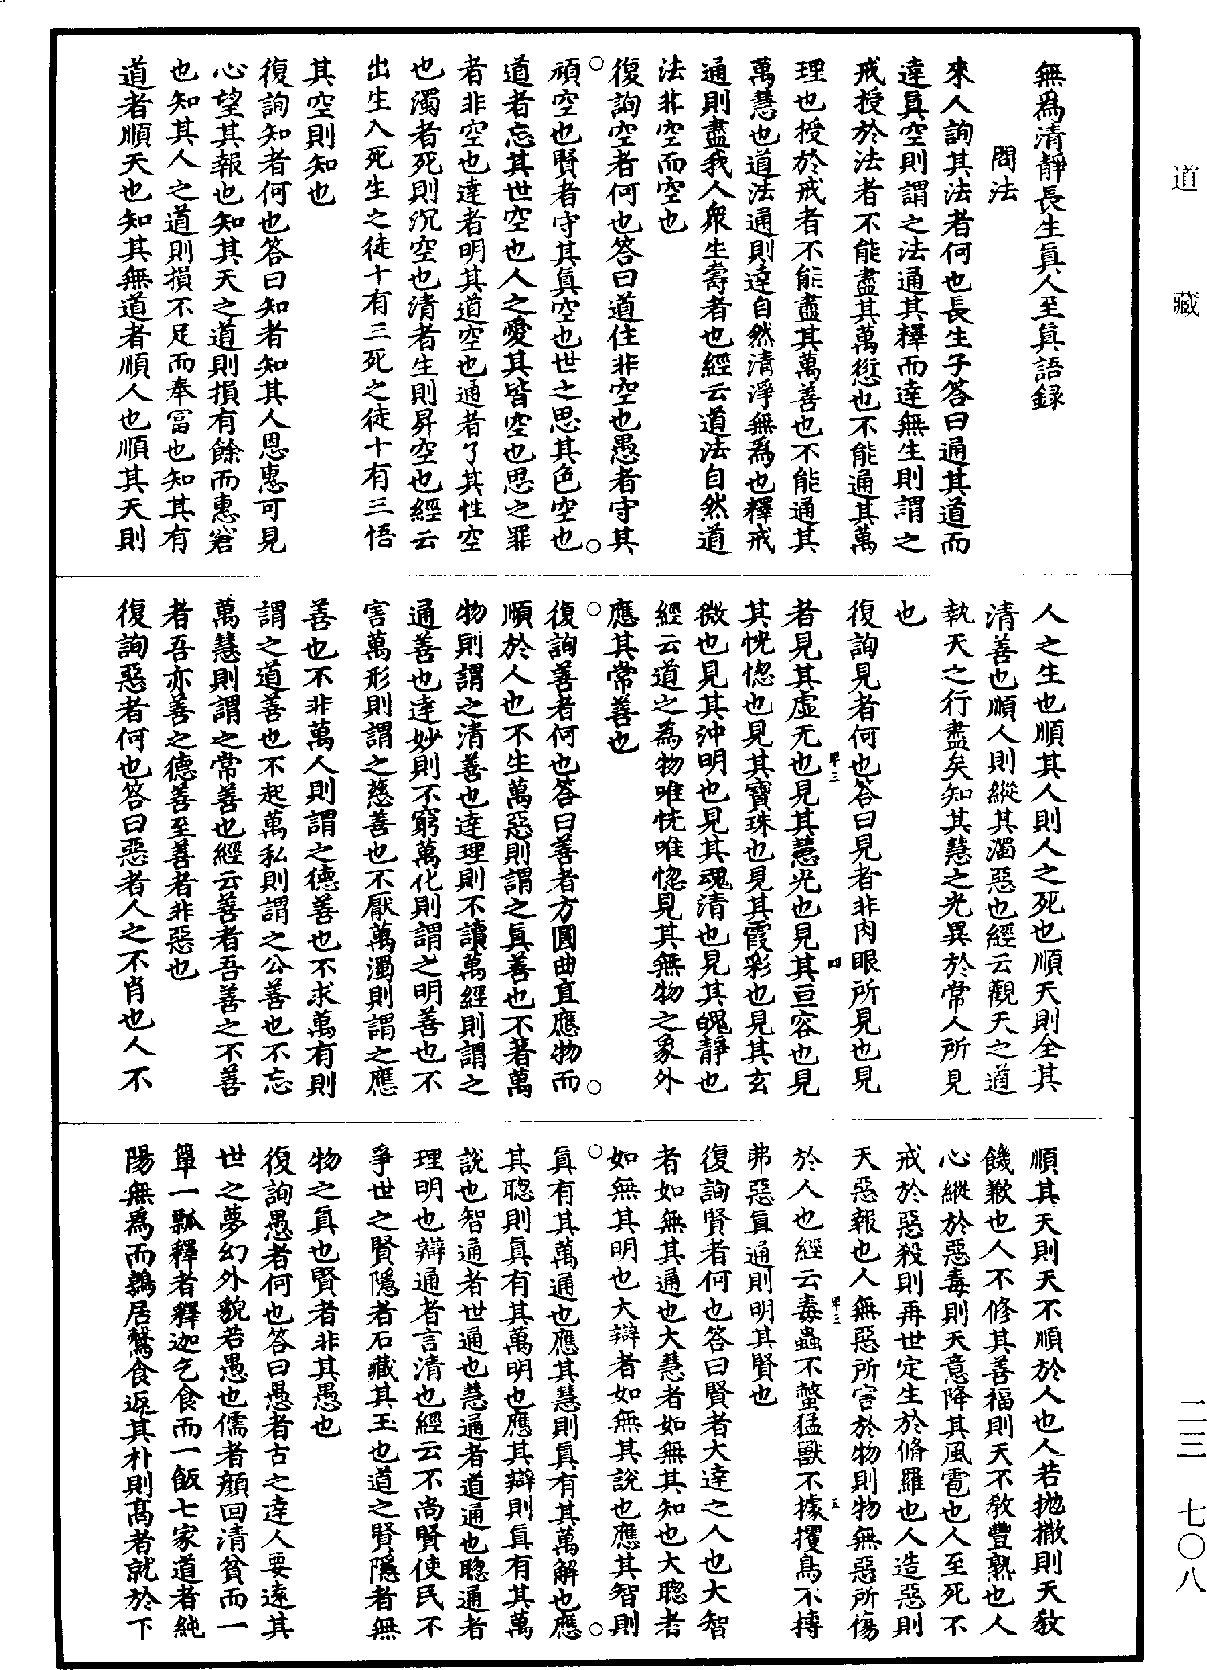 無爲清靜長生眞人至眞語録
問法
來人詢其法者何也長生子答曰通其道而
達眞空則謂之法通其釋而達無生則謂之
戒授於法者不能盡其萬愆也不能通其萬
理也授於戒者不能盡其萬善也不能通其
萬慧也道法通則達自然清淨無爲也釋戒
通則盡我人衆生壽者也經云道法自然道
法非空而空也
復詢空者何也答曰道住非空也愚者守其
頑空也賢者守其眞空也世之思其色空也
道者忘其世空也人之愛其皆空也思之罪
者非空也達者明其道空也通者了其性空
也濁者死則沉空也清者生則昇空也經云
出生入死生之徒十有三死之徒十有三悟
其空則知也
復詢知者何也答曰知者知其人恩惠可見
心望其報也知其天之道則損有餘而惠窘
也知其人之道則損不足而奉富也知其有
道者順天也知其無道者順人也順其天則
人之生也順其人則人之死也順天則全其
清善也順人則縱其濁惡也經云觀天之道
執天之行盡矣知其慧之光異於常人所見
也
復詢見者何也答曰見者非肉眼所見也見
者見其虛无也見其慧光也見其亘容也見
其恍惚也見其寶珠也見其霞彩也見其玄
微也見其沖明也見其魂清也見其魄靜也
經云道之爲物唯恍唯惚見其無物之象外
應其常善也
復詢善者何也答曰善者方圓曲直應物而
順於人也不生萬惡則謂之眞善也不著萬
物則謂之清善也達理則不讀萬經則謂之
通善也達妙則不窮萬化則謂之明善也不
害萬形則謂之慈善也不厭萬濁則謂之應
善也不非萬人則謂之德善也不求萬有則
謂之道善也不起萬私則謂之公善也不忘
萬慧則謂之常善也經云善者吾善之不善
者吾亦善之德善至善者非惡也
復詢惡者何也答曰惡者人之不肖也人不
順其天則天不順於人也人若拋撒則天教
饑歉也人不修其善福則天不教豐熟也人
心縱於惡毒則天意降其風雹也人至死不
戒於惡殺則再世定生於脩羅也人造惡則
天惡報也人無惡所害於物則物無惡所傷
於人也經云毒蟲不螫猛獸不據攫鳥不摶
弗惡眞通則明其賢也
復詢賢者何也答曰賢者大達之人也大智
者如無其通也大慧者如無其知也大聰者
如無其明也大辯者如無其說也應其智則
眞有其萬通也應其慧則眞有其萬解也應
其聰則眞有其萬明也應其辯則眞有其萬
說也智通者世通也慧通者道通也聰通者
理明也辯通者言清也經云不尚賢使民不
爭世之賢隱者石藏其玉也道之賢隱者無
物之眞也賢者非其愚也
復詢愚者何也答曰愚者古之達人要遠其
世之夢幻外貌若愚也儒者顏回清貧而一
簞一瓢釋者釋迦乞食而一飯七家道者純
陽無爲而鶉居鷇食返其朴則高者就於下
道藏
二三　七〇八